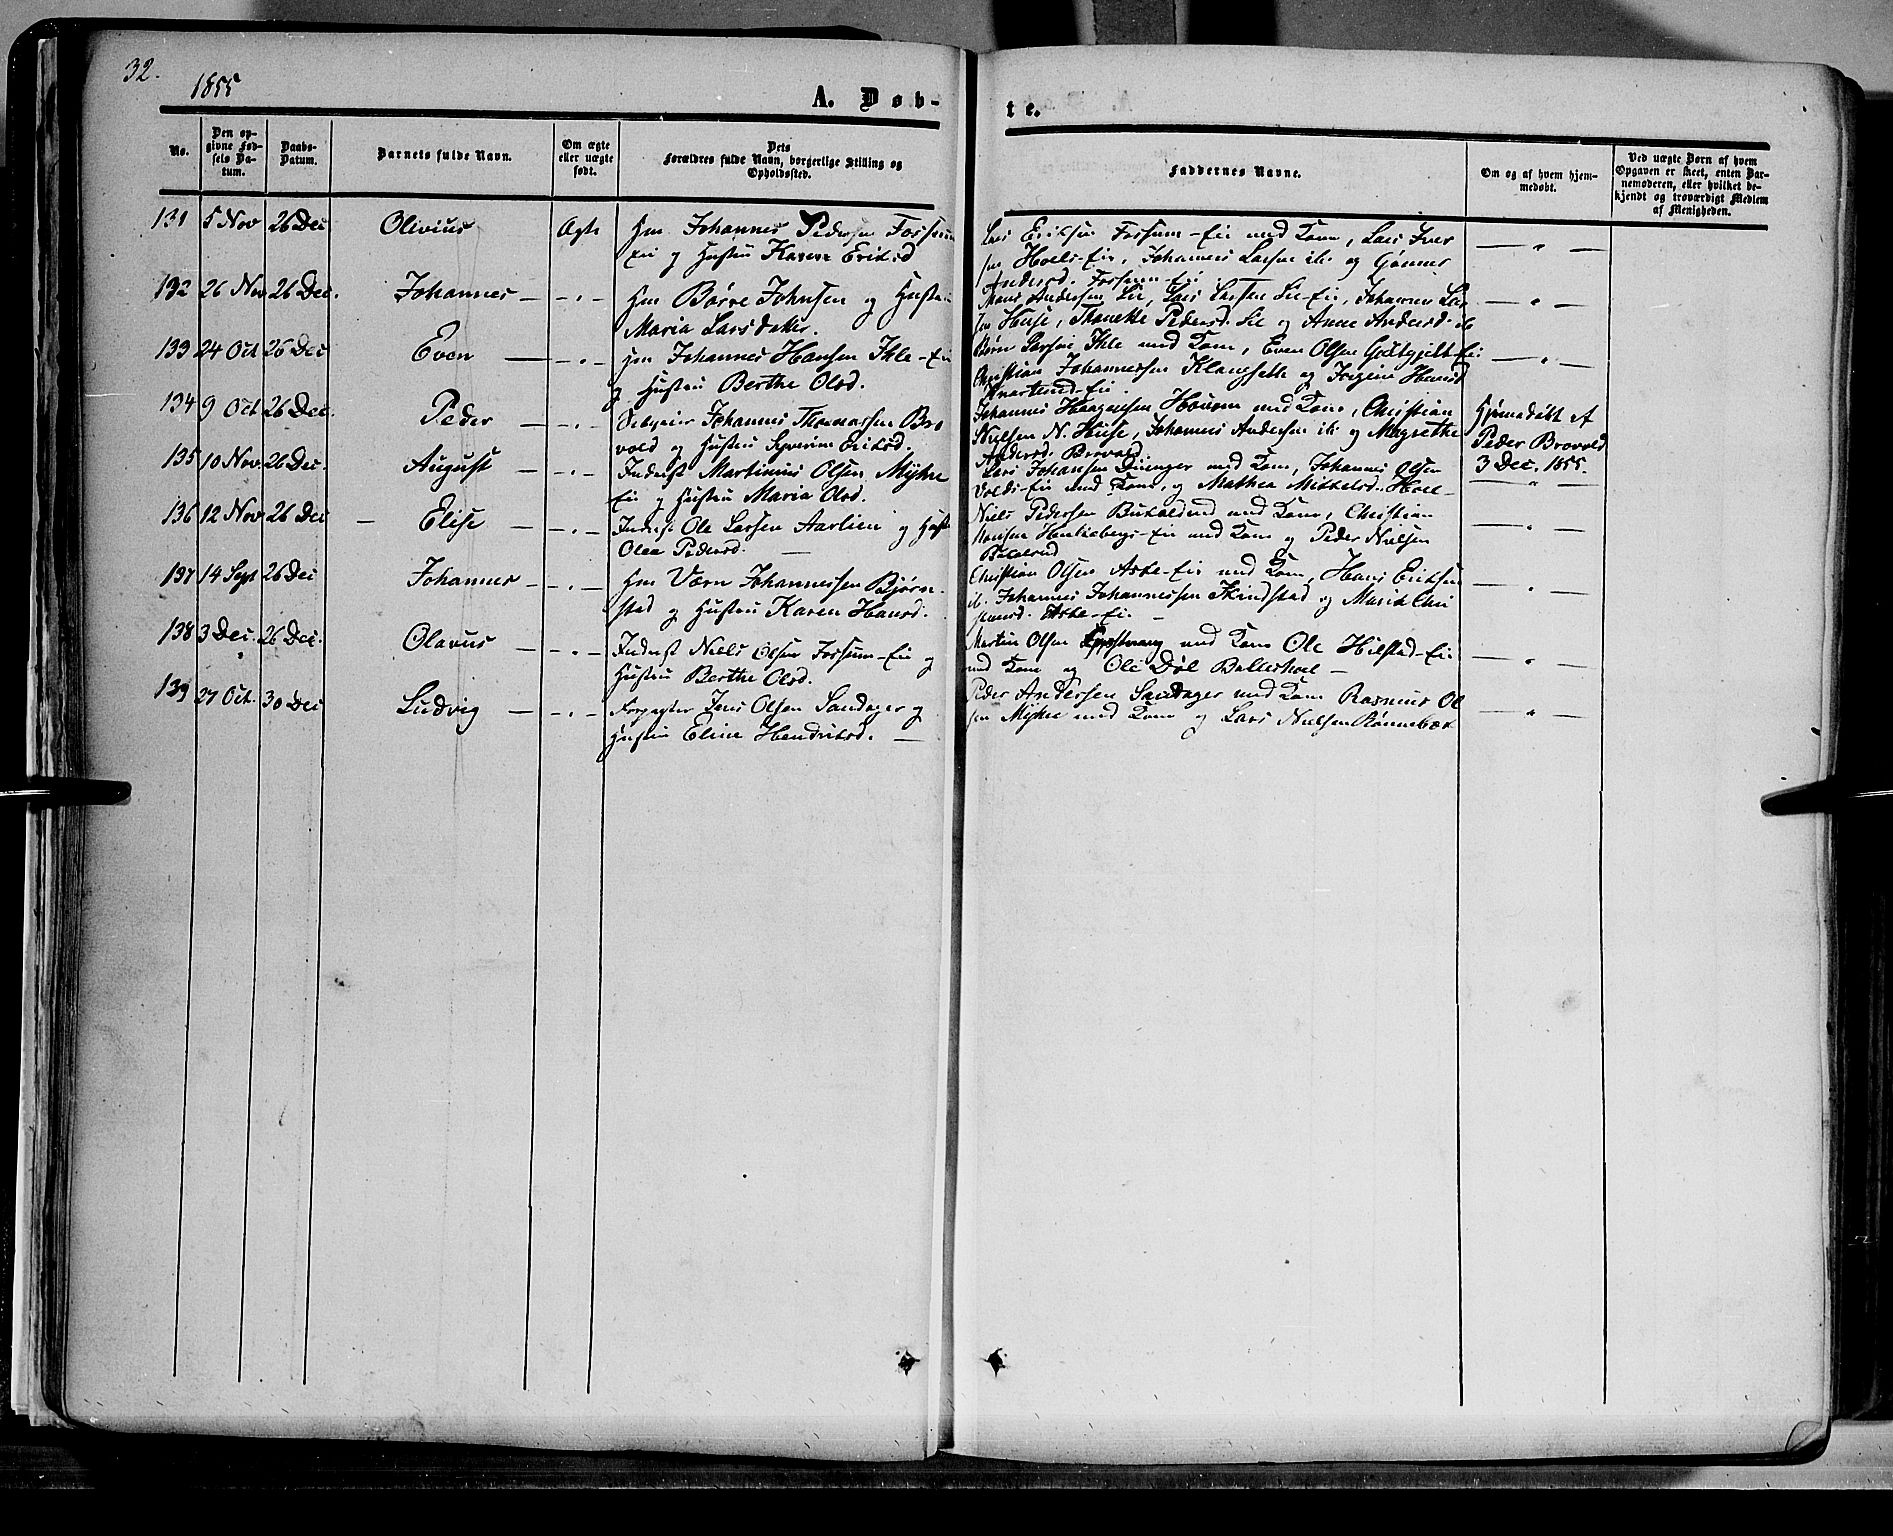 32.
1855
A. Døb-
te.
No.
Den op-
givne Fød-
sels Da-
tum.
Daabs-
Datum.
Barnets fulde Navn.
Om ægte
eller uægte
født.
Dets
Forældres fulde Navn, borgerlige Stilling og
Opholdssted.
Faddernes Navne.
Om og af hvem hjem-
medøbt.
Ved uægte Børn af hvem
Opgaven er skeet, enten Bar-
nemoderen, eller hvilket be-
kjendt og troværdigt Medlem
af Menigheden.
131 5 Nov 26 Dec Olivius Ægte Johannes Pedersen Fossum
Ei og Hustru Karen Eriksd
Lars Eriksen Fossum-Ei med Kone, Lars Iver
sen Hoels-Ei, Johannes Larsen ib. og Gunner
Andersd. Fossum-Ei
132 26 Nov 26 Dec. Johannes — " — Børre Johnsen og Hustru
Maria Larsdatter.
Hans Andersen Lie, Lars Larsen Lie-Ei, Johannes Lar
sen Huse, Thonette Pedersd. Lie og Anne Andersd. ib
133 24 Oct 26 Dec Even — " — Johannes Hansen Ihle-Ei
og Hustru Berthe Olsd.
Børre Larsen Ihle med Kone, Even Olsen
Christian Johannessen Klangseth og Hansd
134 9 Oct 26 Dec. Peder — " — Selveier Johannes Thomassen Bro
vold og Hustru Syverine Eriksd.
Johannes Haagensen Houem med Kone, Christian
Nielsen N. Huse, Johannes Andersen ib. og Magrethe
Andersd. Brovold
Hjemmedøbt af
Peder Brovold
3 Dec. 1855.
135 10 Nov. 26 Dec. August — " — Inderst Martinus Olsen Myhre
Ei og Hustru Maria Olsd.
Lars Johansen med Kone, Johannes Olsen
Volds-Ei med Kone, og Mathea Mikkelsd. Hoel —
136 12 Nov 26 Dec — Elise — " — Inderst Ole Larsen Aarlien og Hustr
Olea Pedersd. —
Niels Pedersen med Kone, Christian
Hansen med Kone og Peder Nielsen
137 14 Sept 26 Dec Johannes — " — Johannessen Bjørn-
stad og Hustru Karen Hansd.
Christian Olsen Ei med Kone, Hans Eriksen
ib. Johannes Johannessen Skindstad og Marit
138 3 Dec. 26 Dec. Olavus — " — Inderst Niels Olsen Fossum-Ei og
Hustru Berthe Olsd.
Martin Olsen med Kone Ole Hilstad-Ei
med Kone og Ole Døl Balleshoel —
139 27 Oct. 30 Dec Ludvig — " — Forpagter Jens Olsen Sandager og
Hustru Eline Hendriksd. —
Peder Andersen Sandager med Kone Rasmus Ol
sen Myhre med Kone og Lars Nielsen Rønnebæk